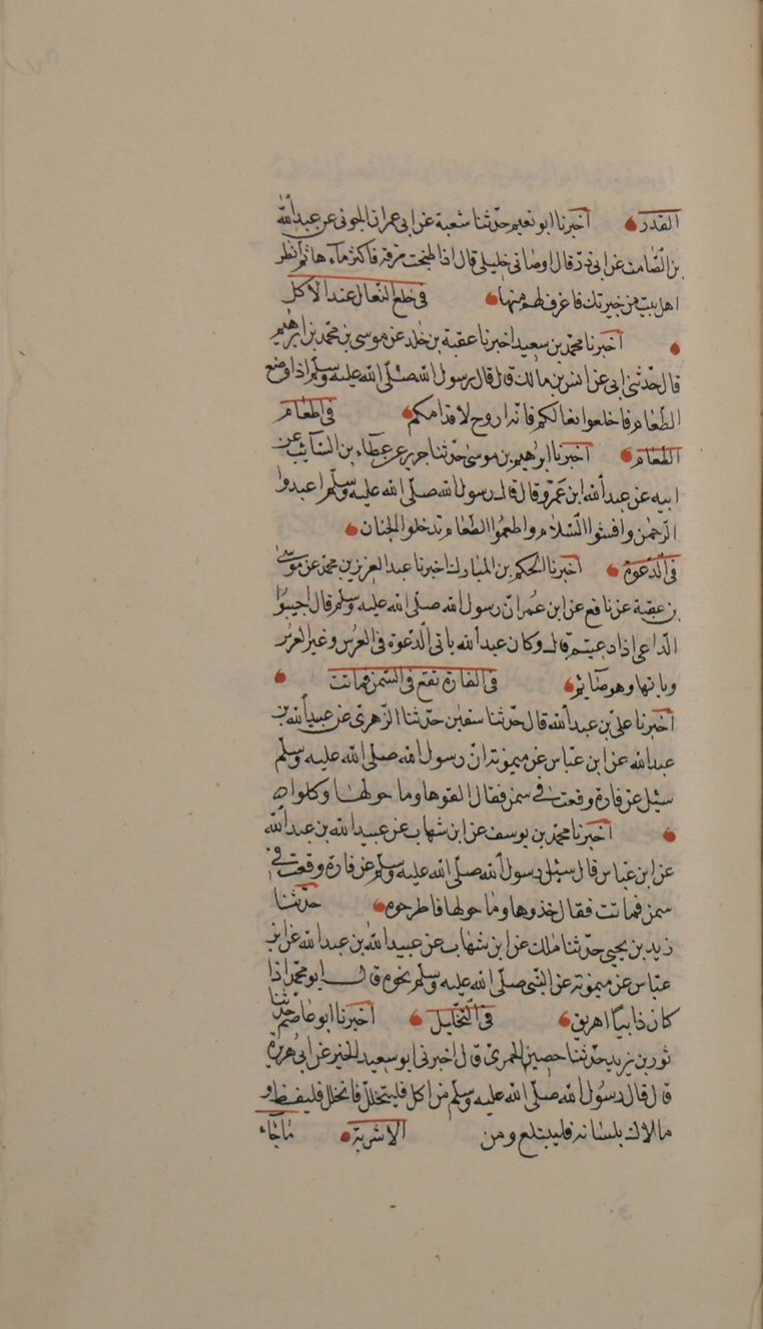 القدر اخبرنا ابو نعيم حدثنا شعبة عن ابى عمران الجونى عن عبد الله
بن الصامت عن ابى ذر قال اوصانى خليلى قال اذا طبخت مرقة فاكثر ماءها ثم انظر
اهل بيت من جيرتك فاغرف لهم منها فى خلع النعال عند الاكل
اخبرنا محمد بن سعيد اخبرنا عقبة بن خلد عن موسى بن محمد بن ابرهيم
قال حدثنى ابى عن انس بن مالك قال قال رسول الله صلى الله عليه وسلم اذا وضع
الطعام فاخلعوا نعالكم فانه اروح لاقدامكم فى اطعام
الطعام اخبرنا ابرهيم بن موسى حدثنا جرير عن عطاء بن السائب عن
ابيه عن عبد الله ابن عمرو قال قال رسول الله صلى الله عليه وسلم اعبدوا
الرحمن وافشوا السلام واطعموا الطعام تدخلوا الجنان
فى الدعوة اخبرنا الحكم بن المبارك اخبرنا عبد العزيز بن محمد عن موسى
بن عقبة عن نافع عن ابن عمر ان رسول الله صلى الله عليه وسلم قال اجيبوا
الداعى اذا دعيتم قال وكان عبد الله ياتى الدعوة فى العرس وغير العرس
وياتيها وهو صائم فى الفارة تقع فى السمن فماتت
اخبرنا على بن عبد الله قال حدثنا سفين حدثنا الزهرى عن عبيد الله بن
عبد الله عن ابن عباس عن ميمونة ان رسول الله صلى الله عليه وسلم
سئل عن فارة وقعت فى سمن فقال القوها وما حولها وكلوا
اخبرنا محمد بن يوسف عن ابن شهاب عن عبيد الله بن عبد الله
عن ابن عباس قال سئل رسول الله صلى الله عليه وسلم عن فارة وقعت فى
سمن فماتت فقال خذوها وما حولها فاطرحوه حدثنا
زيد بن يحيى حدثنا ملك عن ابن شهاب عن عبيد الله بن عبد الله عن ابن
عباس عن ميمونة عن النبى صلى الله عليه وسلم نحوه قال ابو محمد اذا
كان ذائبا اهريق فى التخليل اخبرنا ابو عاصم حدثنا
ثور بن يزيد حدثنا حصين الحمرى قال اخبرنى ابو سعيد الخير عن ابى هريرة
قال قال رسول الله صلى الله عليه وسلم من اكل فليتخلل فما تخلل فليلفظ و
ما لاك بلسانه فليبتلع ومن الاشربة ماجاء